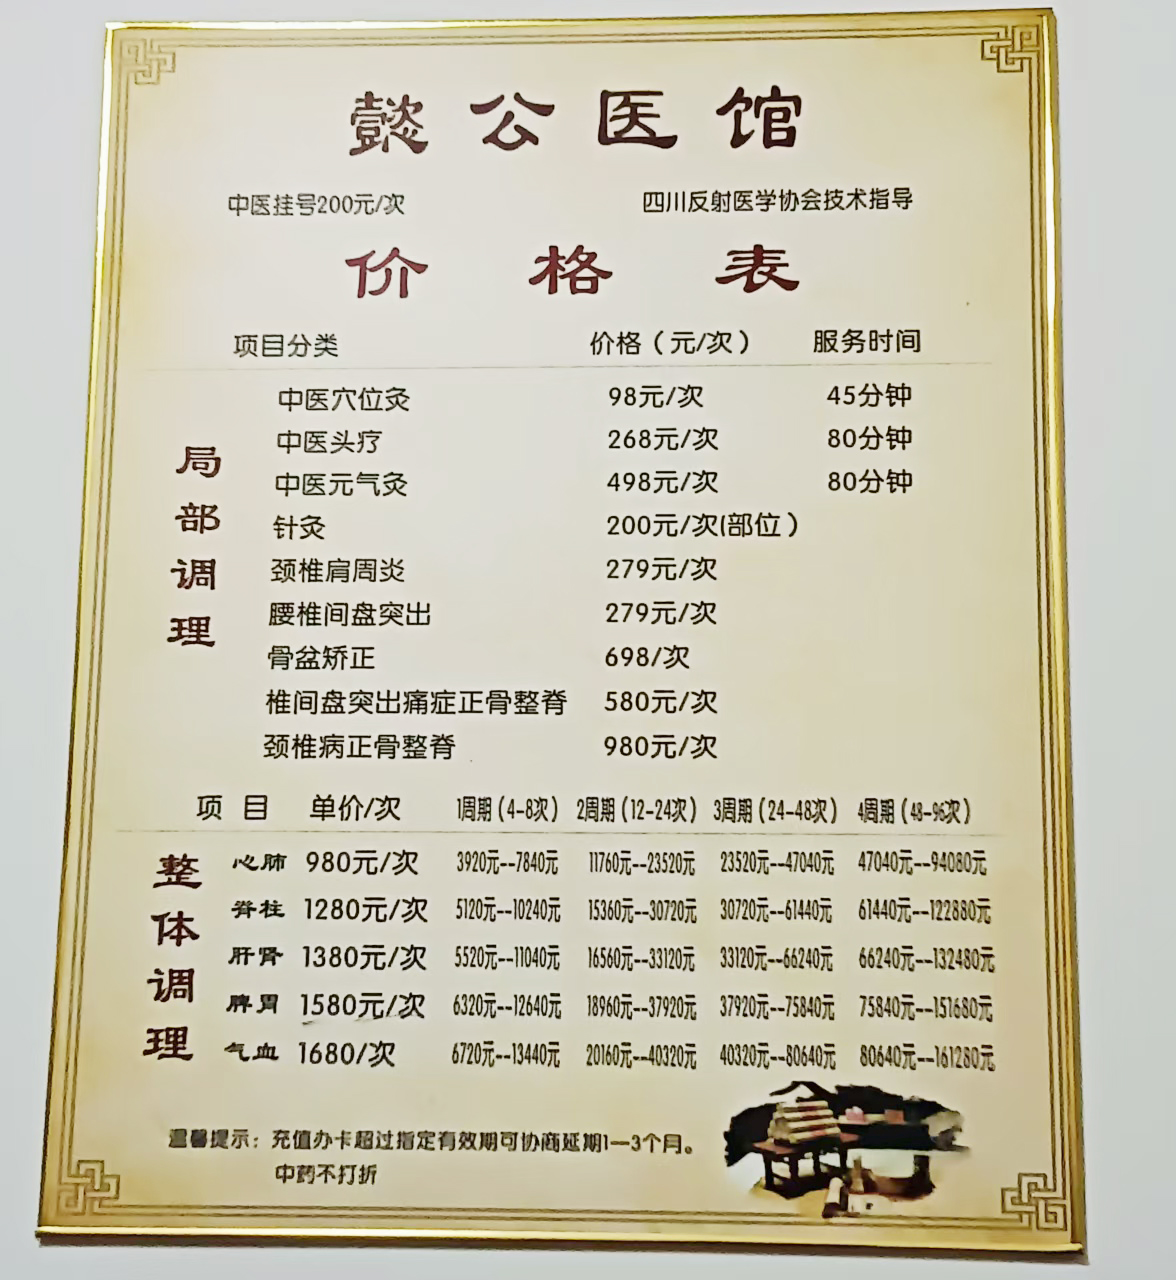 懿公医馆
中医挂号200元/次 四川反射医学协会技术指导
价格表
项目分类 价格（元/次） 服务时间
局部调理
中医穴位灸 98元/次 45分钟
中医头疗 268元/次 80分钟
中医元气灸 498元/次 80分钟
针灸 200元/次(部位）
颈椎肩周炎 279元/次
腰椎间盘突出 279元/次
骨盆矫正 698/次
椎间盘突出痛症正骨整脊 580元/次
颈椎病正骨整脊 980元/次
项目 单价/次 1周期（4-8次） 2周期（12-24次） 3周期（24-48次） 4周期（48-96次）
整体调理
心肺 980元/次 3920元--7840元 11760元--23520元 23520元--47040元 47040元--94080元
脊柱 1280元/次 5120元--10240元 15360元--30720元 30720元--61440元 61440元--122880元
肝肾 1380元/次 5520元--11040元 16560元--33120元 33120元--66240元 66240元--132480元
脾胃 1580元/次 6320元--12640元 18960元--37920元 37920元--75840元 75840元--151680元
气血 1680/次 6720元--13440元 20160元--40320元 40320元--80640元 80640元--161280元
温馨提示：充值办卡超过指定有效期可协商延期1—3个月。
中药不打折